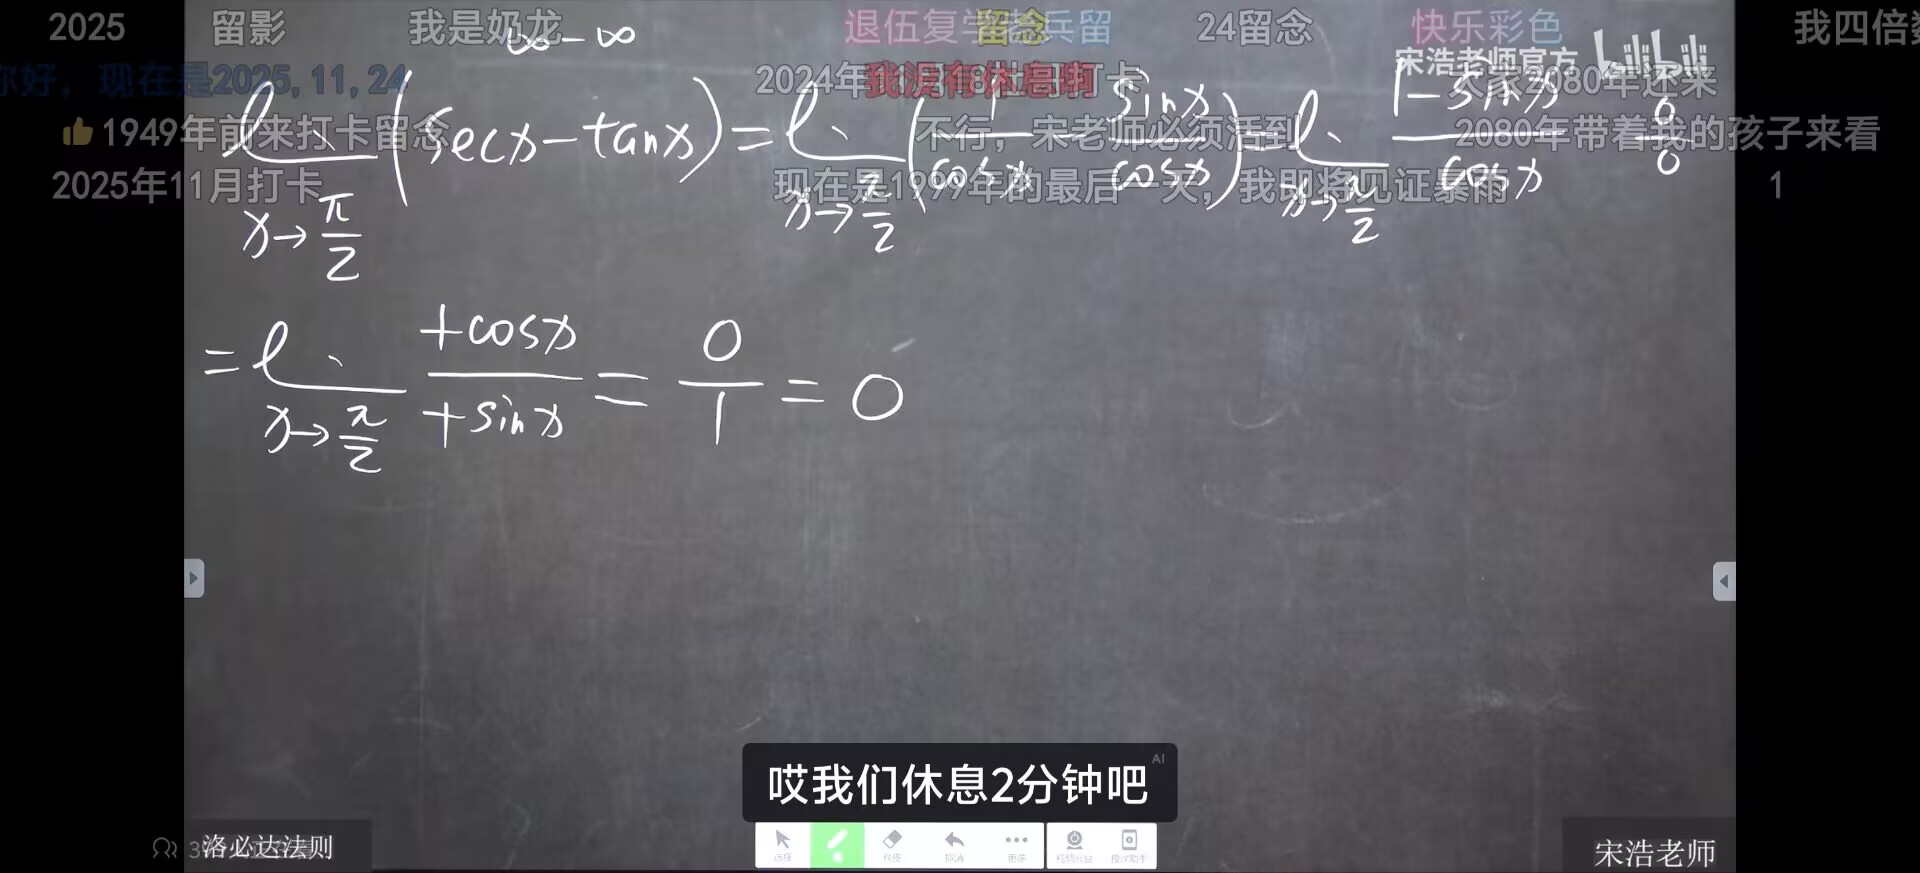 2025 留影 我是奶龙 退伍复学 留念 兵留 24留念 快乐彩色 我四倍
∞-∞
宋浩老师官方 bilibili
你好，现在是2025,11,24 2024年 我没有休息啊 打卡 2080年还来
1949年前来打卡留念 不行，宋老师必须活到 2080年带着我的孩子来看
lim x→π/2 (secx-tanx) = lim x→π/2 (1/cosx - sinx/cosx) = lim x→π/2 (1-sinx)/cosx 0/0
2025年11月打卡 现在是1999年的最后一天，我即将见证暴雨 1
= lim x→π/2 +cosx/+sinx = 0/1 = 0
哎我们休息2分钟吧 AI
选择 更多
洛必达法则
宋浩老师